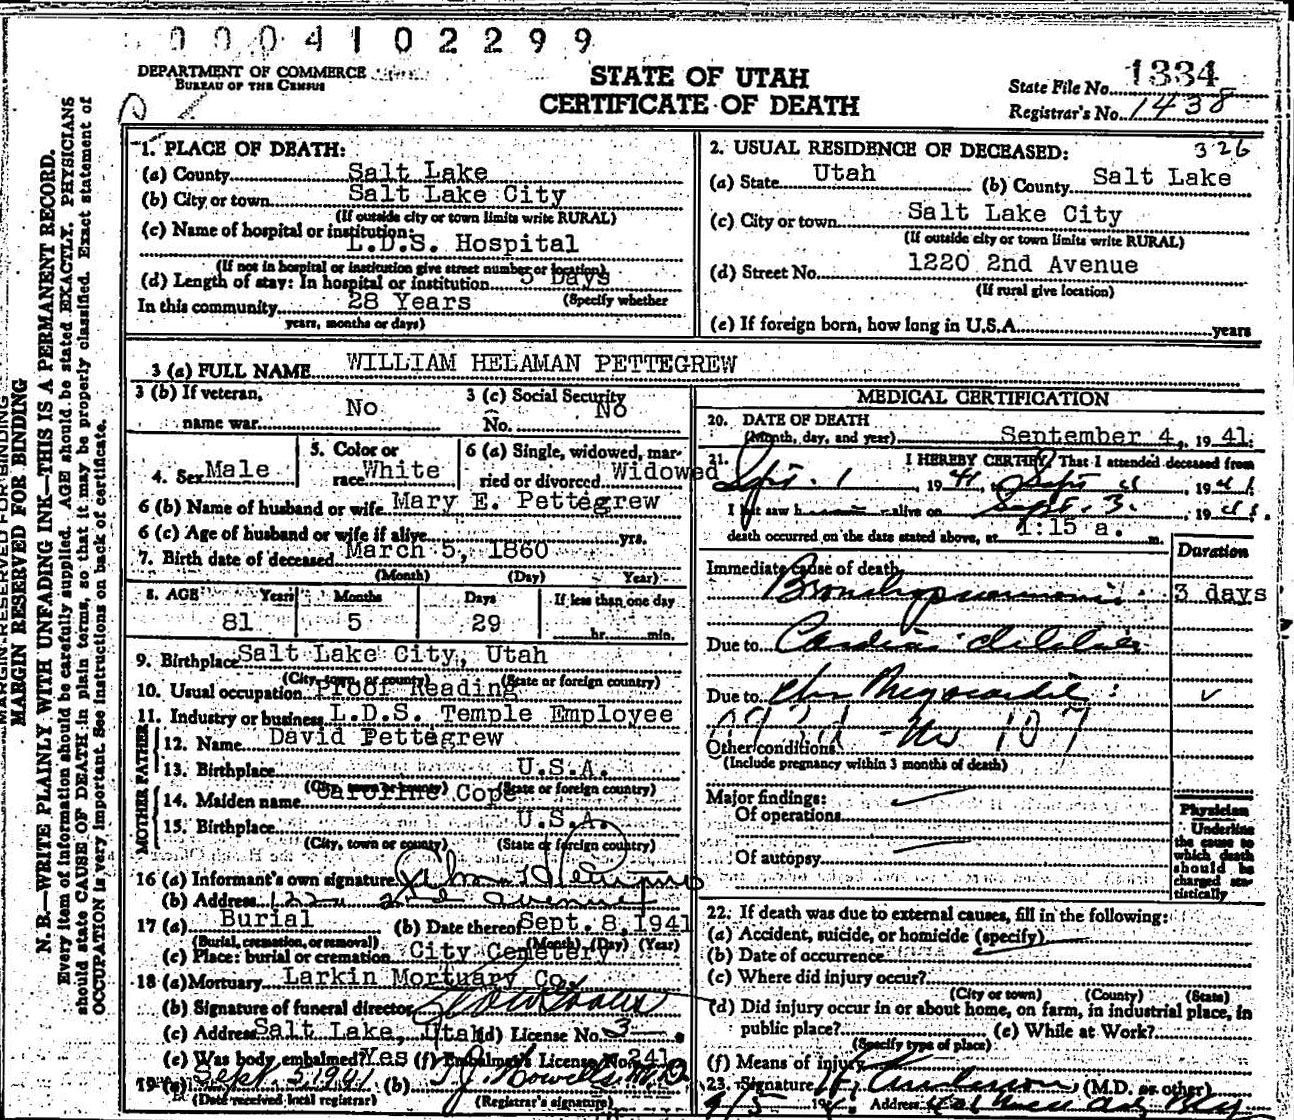 0004102299
DEPARTMENT OF COMMERCE
BUREAU OF THE CENSUS
STATE OF UTAH
CERTIFICATE OF DEATH
State File No. 1334
Registrar's No. 1438
MARGIN RESERVED FOR BINDING
N. B.—WRITE PLAINLY WITH UNFADING INK—THIS IS A PERMANENT RECORD.
Every item of information should be carefully supplied. AGE should be stated EXACTLY. PHYSICIANS
should state CAUSE OF DEATH in plain terms, so that it may be properly classified. Exact statement of
OCCUPATION is very important. See instructions on back of certificate.
1. PLACE OF DEATH:
(a) County Salt Lake
(b) City or town Salt Lake City
(If outside city or town limits write RURAL)
(c) Name of hospital or institution:
L.D.S. Hospital
(If not in hospital or institution give street number or location)
(d) Length of stay: In hospital or institution 5 Days
(Specify whether
In this community 28 Years
years, months or days)
2. USUAL RESIDENCE OF DECEASED: 326
(a) State Utah (b) County Salt Lake
(c) City or town Salt Lake City
(If outside city or town limits write RURAL)
(d) Street No. 1220 2nd Avenue
(If rural give location)
(e) If foreign born, how long in U.S.A. years
3 (a) FULL NAME WILLIAM HELAMAN PETTEGREW
3 (b) If veteran,
name war No
3 (c) Social Security
No. No
4. Sex Male
5. Color or
race White
6 (a) Single, widowed, mar-
ried or divorced Widowed
6 (b) Name of husband or wife Mary E. Pettegrew
6 (c) Age of husband or wife if alive yrs.
7. Birth date of deceased March 5, 1860
(Month) (Day) Year)
8. AGE Years Months Days If less than one day
81 5 29 hr. min.
9. Birthplace Salt Lake City, Utah
(City, town, or county) (State or foreign country)
10. Usual occupation Proof Reading
11. Industry or business L.D.S. Temple Employee
FATHER
12. Name David Pettegrew
13. Birthplace U.S.A.
(City, town or county) (State or foreign country)
MOTHER
14. Maiden name Caroline Cope
15. Birthplace U.S.A.
(City, town or county) (State or foreign country)
16 (a) Informant's own signature
(b) Address 2nd avenue
17 (a) Burial (b) Date thereof Sept. 8, 1941
(Burial, cremation, or removal) (Month) (Day) (Year)
(c) Place: burial or cremation City Cemetery
18 (a) Mortuary Larkin Mortuary Co.
(b) Signature of funeral director
(c) Address Salt Lake, Utah (d) License No. 3
(e) Was body embalmed? Yes (f) Embalmer's License No. 241
19 (a) Sept 5, 1941 (b)
(Date received local registrar) (Registrar's signature)
MEDICAL CERTIFICATION
20. DATE OF DEATH
(Month, day, and year) September 4, 1941.
21. I HEREBY CERTIFY, That I attended deceased from
Sept. 1, 1941, to Sept 4, 1941
I last saw h alive on Sept. 3, 1941.
death occurred on the date stated above, at 1:15 a. m.
Duration
Immediate cause of death
Bronchopneumonia 3 days
Due to Cardiac dilatation
Due to Chr Myocarditis
107
Other conditions
(Include pregnancy within 3 months of death)
Major findings:
Of operations
Of autopsy
Physician
Underline
the cause to
which death
should be
charged sta-
tistically
22. If death was due to external causes, fill in the following:
(a) Accident, suicide, or homicide (specify)
(b) Date of occurrence
(c) Where did injury occur?
(City or town) (County) (State)
(d) Did injury occur in or about home, on farm, in industrial place, in
public place? (e) While at Work?
(Specify type of place)
(f) Means of injury
23. Signature (M.D. or other)
9/5 1941 Address